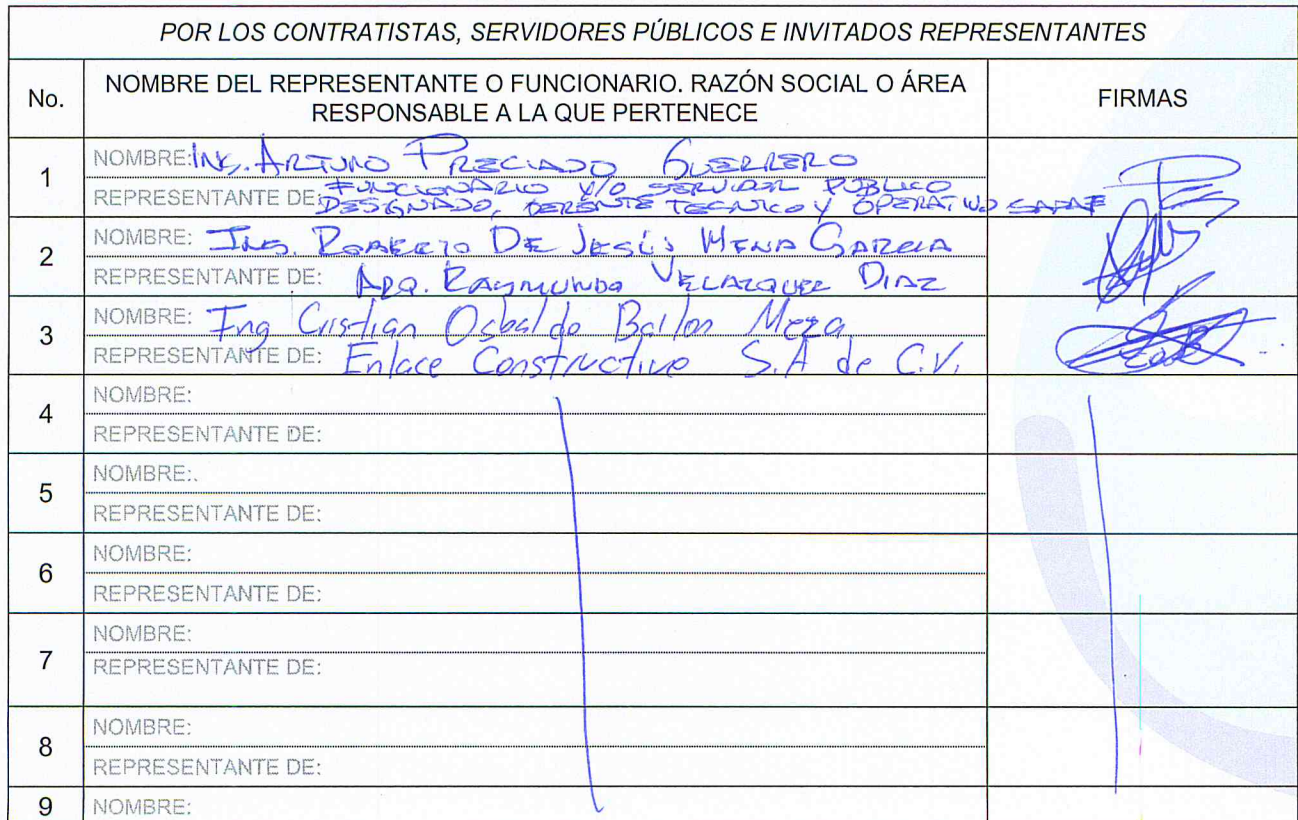 POR LOS CONTRATISTAS, SERVIDORES PÚBLICOS E INVITADOS REPRESENTANTES
No.
NOMBRE DEL REPRESENTANTE O FUNCIONARIO. RAZÓN SOCIAL O ÁREA
RESPONSABLE A LA QUE PERTENECE
FIRMAS
1
NOMBRE: ING. ARTURO PRECIADO GUERRERO
REPRESENTANTE DE: FUNCIONARIO Y/O SERVIDOR PUBLICO
DESIGNADO, GERENTE TECNICO Y OPERATIVO
2
NOMBRE: ING. ROBERTO DE JESÚS MENA GARCIA
REPRESENTANTE DE: ARQ. RAYMUNDO VELAZQUEZ DIAZ
3
NOMBRE: Ing Cristian Osbaldo Bailon Meza
REPRESENTANTE DE: Enlace Constructivo S.A de C.V.
4
NOMBRE:
REPRESENTANTE DE:
5
NOMBRE:.
REPRESENTANTE DE:
6
NOMBRE:
REPRESENTANTE DE:
7
NOMBRE:
REPRESENTANTE DE:
8
NOMBRE:
REPRESENTANTE DE:
9
NOMBRE: